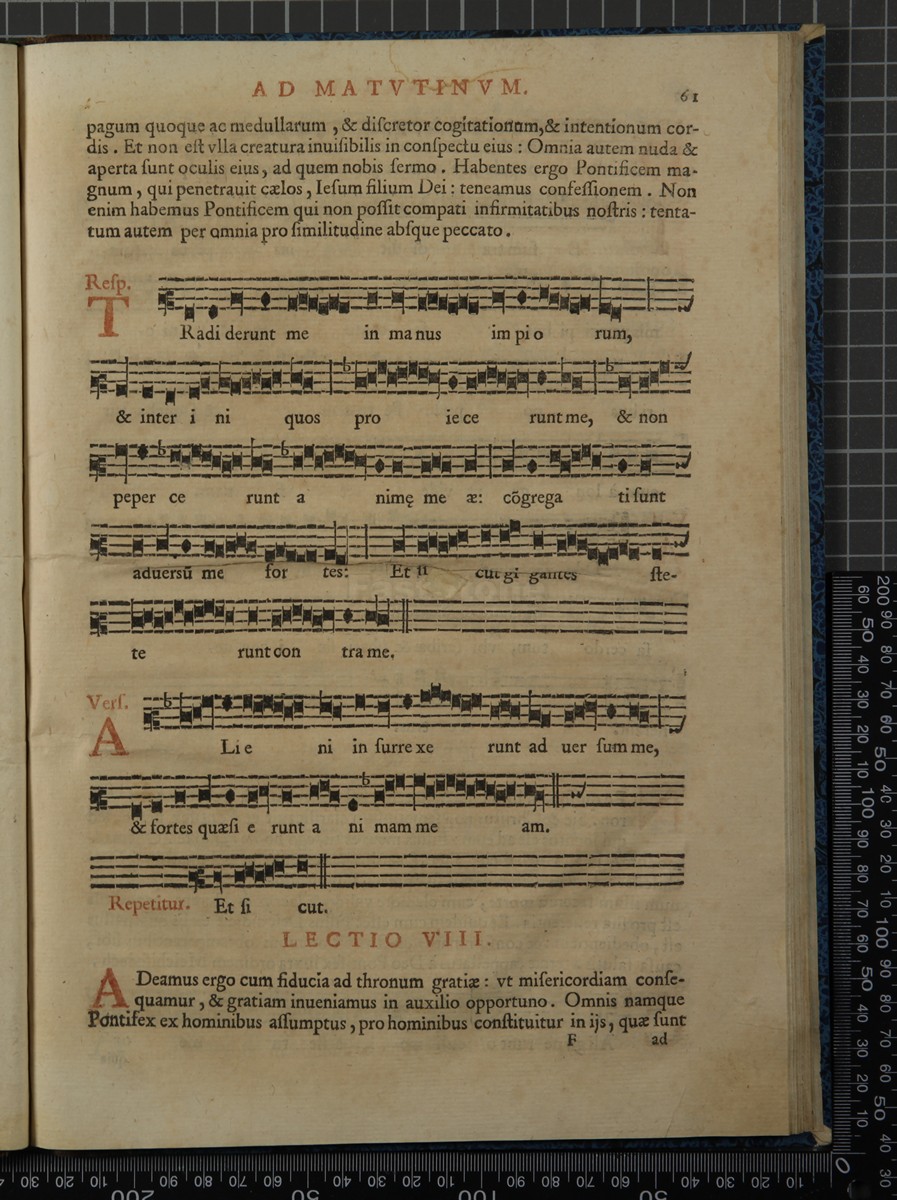 AD MATVTINVM.
61
pagum quoque ac medullarum , & diſcretor cogitationum,& intentionum cor-
dis . Et non eſt vlla creatura inuiſibilis in conſpectu eius : Omnia autem nuda &
aperta ſunt oculis eius , ad quem nobis ſermo . Habentes ergo Pontificem ma-
gnum , qui penetrauit cælos , Ieſum filium Dei : teneamus confeſſionem . Non
enim habemus Pontificem qui non poſſit compati infirmitatibus noſtris : tenta-
tum autem per omnia pro ſimilitudine abſque peccato .
Reſp.
TRadi derunt me in ma nus im pi o rum,
& inter i ni quos pro ie ce runt me, & non
peper ce runt a nimę me æ: cõgrega ti ſunt
aduersũ me for tes: Et ſi cut gi gantes ſte-
te runt con tra me.
Verſ.
ALi e ni in ſurre xe runt ad uer ſum me,
& fortes quæſi e runt a ni mam me am.
Repetitur. Et ſi cut.
LECTIO VIII.
ADeamus ergo cum fiducia ad thronum gratiæ : vt miſericordiam conſe-
quamur , & gratiam inueniamus in auxilio opportuno . Omnis namque
Pontifex ex hominibus aſſumptus , pro hominibus conſtituitur in ijs , quæ ſunt
F ad